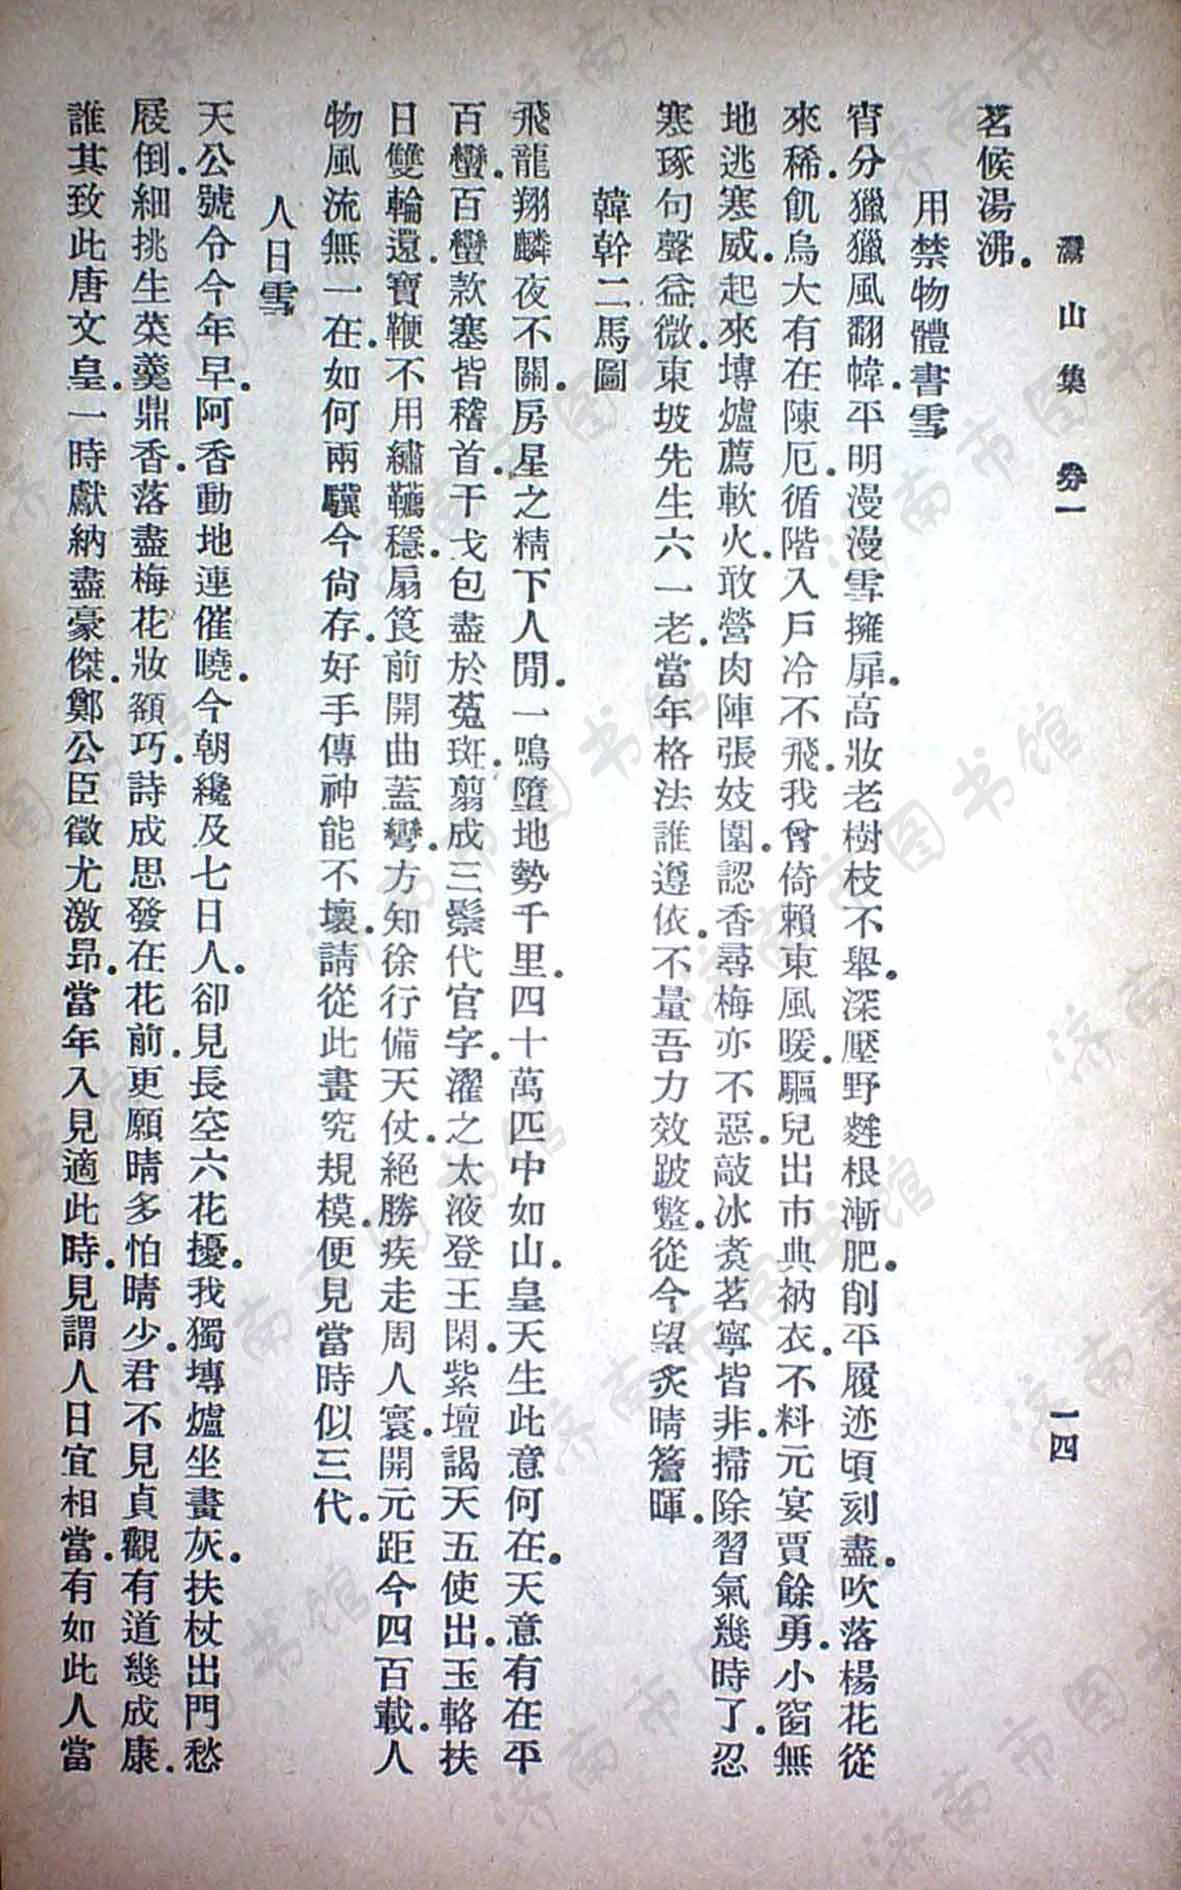 灊山集 卷一 一四
茗候湯沸。
用禁物體書雪
宵分獵獵風翻幃。平明漫漫雪擁扉。高妝老樹枝不舉。深壓野蔬根漸肥。削平履迹頃刻盡。吹落楊花從
來稀。飢烏大有在陳厄。循階入戶冷不飛。我曾倚賴東風暖。驅兒出市典衲衣。不料元宴賈餘勇。小窗無
地逃寒威。起來塼爐薦軟火。敢營肉陣張妓圍。認香尋梅亦不惡。敲冰煑茗寧皆非。掃除習氣幾時了。忍
寒琢句聲益微。東坡先生六一老。當年格法誰遵依。不量吾力效跛鼈。從今望炙晴簷暉。
韓幹二馬圖
飛龍翔麟夜不關。房星之精下人閒。一鳴墮地勢千里。四十萬匹中如山。皇天生此意何在。天意有在平
百蠻。百蠻款塞皆稽首。干戈包盡於菟斑。翦成三鬃代官字。濯之太液登王閑。紫壇謁天五使出。玉輅扶
日雙輪還。寶鞭不用繡韉穩。扇筤前開曲蓋彎。方知徐行備天仗。絕勝疾走周人寰。開元距今四百載。人
物風流無一在。如何兩驥今尙存。好手傳神能不壞。請從此畫究規模。便見當時似三代。
人日雪
天公號令今年早。阿香動地連催曉。今朝纔及七日人。卻見長空六花擾。我獨塼爐坐畫灰。扶杖出門愁
屐倒。細挑生菜羹鼎香。落盡梅花妝額巧。詩成思發在花前。更願晴多怕晴少。君不見貞觀有道幾成康。
誰其致此唐文皇。一時獻納盡豪傑。鄭公臣徵尤激昂。當年入見適此時。見謂人日宜相當。有如此人當